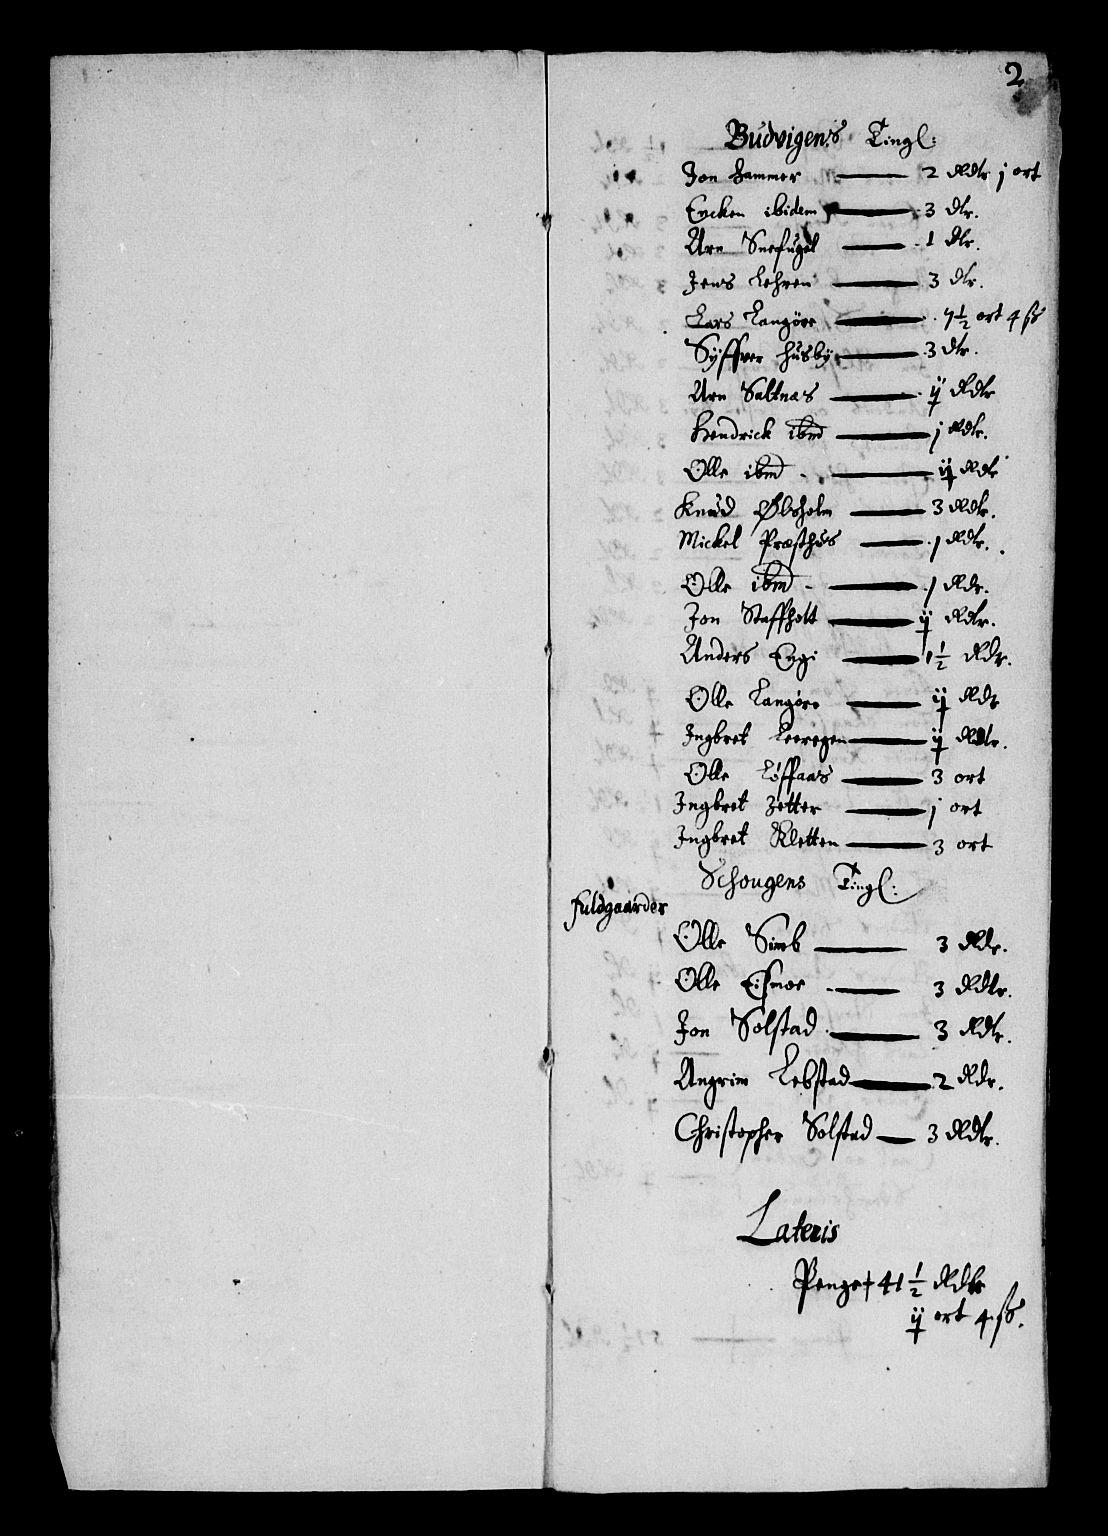 2
Budvigens Tingl:
Jon hammer — 2 Rdlr j ort
Encken ibidem — 3 dlr.
Arn Snefugel — 1 dlr.
Jens Lehren — 3 dlr.
Lars Langøre — 7½ ort 4 ß
Syffver husby — 3 dlr.
Arn Saltnæs — ij Rdlr
Hendrick ibmd — j Rdlr.
Olle ibmd — ij Rdlr
Knud Ølsholm — 3 Rdlr.
Mickel Præsthus — j Rdlr.
Olle ibmd — j Rdr.
Jon Staffholt — ij Rdlr.
Anders Engi — 1½ Rdr.
Olle Langøre — ij Rdr
Ingbret Leeregen — ij Rdlr.
Olle Løffaas — 3 ort
Ingbret Zetter — j ort
Ingbret Kletten — 3 ort
Schougens Tingl:
fuldgaarder
Olle Simb — 3 Rdr.
Olle Eismoe — 3 Rdlr.
Jon Solstad — 3 Rdlr.
Angrim Lebstad — 2 Rdr.
Christopher Solstad — 3 Rdlr.
Lateris
Penge 41½ Rdlr
ij ort 4 ß.